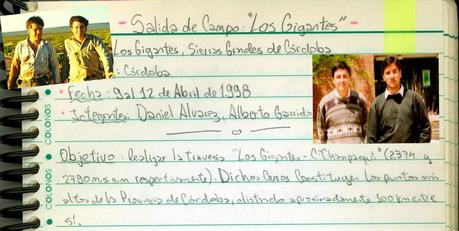 - Salida de Campo: "Los Gigantes" -
Los Gigantes, Sierras Grandes de Córdoba
: Córdoba
- Fecha: 9 al 12 de Abril de 1998
- Integrantes: Daniel Alvarez, Alberto Garrido
Objetivo: Realizar la travesía "Los Gigantes - Cº Champaquí" (2374 y
2790 m.s.n.m respectivamente). Dichos Cerros Constituyen los puntos más
altos de la Provincia de Córdoba, distando aproximadamente 100 km entre
sí.
COLONOS
COLONOS
COLONOS